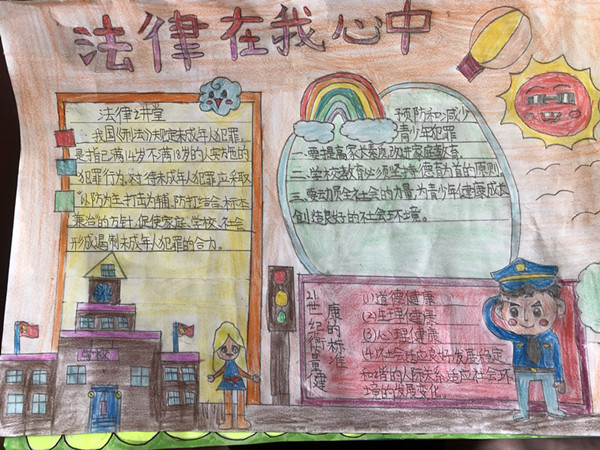 法律在我心中
法律讲堂
我国《刑法》规定未成年人犯罪,
是指已满14岁不满18岁的人实施的
犯罪行为。对待未成年人犯罪,应采取
"以防为主,打击为辅,防打结合,标本
兼治的方针,促使家庭、学校、社会
形成遏制未成年人犯罪的合力。
学校
预防和减少
青少年犯罪
一.要提高家长素质,改进家庭教育。
二.学校教育必须坚持德育为首的原则。
三.要动员全社会的力量,为青少年健康成长
创造良好的社会环境。
21世纪衡量健
康的标准
(1)道德健康
(2)生理健康
(3)心理健康
(4)社会适应良好,发展稳定
和谐的人际关系适应社会环
境的发展变化。